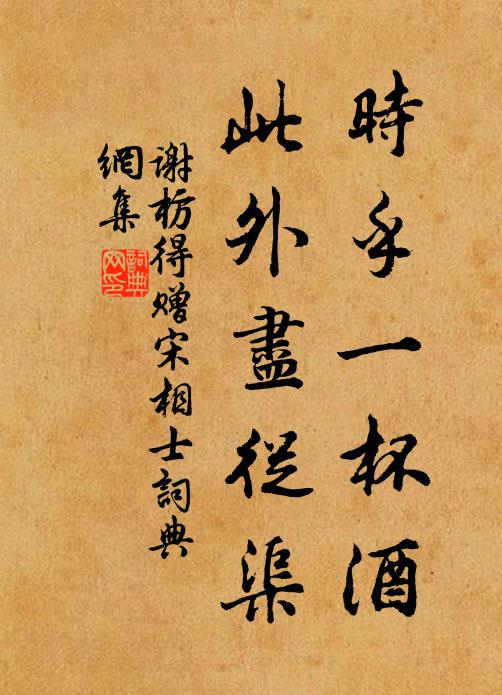 時乎一杯酒
此外盡從渠
謝枋得贈宋相士詞典
網集
詞典网印